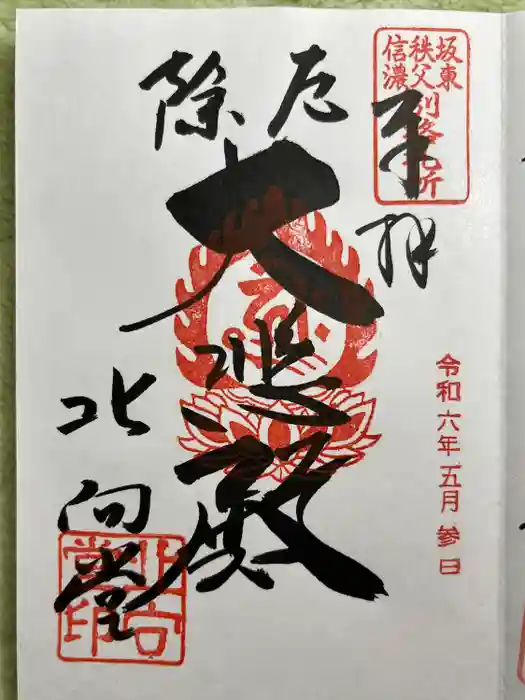 坂東
秩父
信濃
別格札所
奉拝
令和六年五月参日
厄除
大悲殿
北向堂
北向堂印